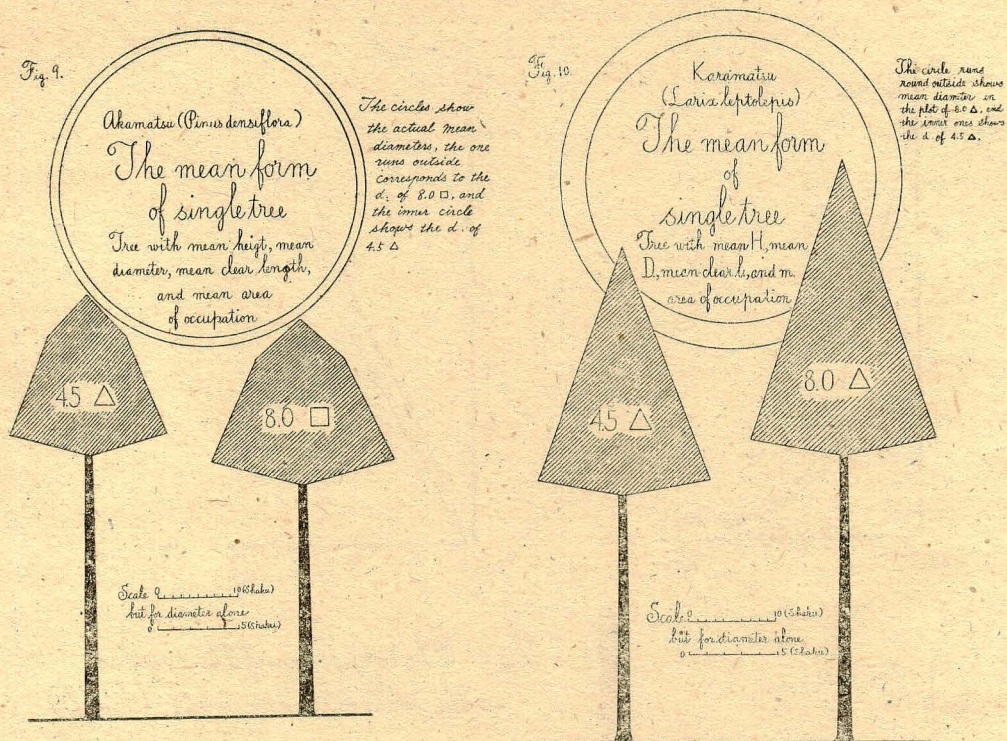 Fig. 9.
Akamatsu (Pinus densiflora)
The mean form
of single tree
Tree with mean heigt, mean
diameter, mean clear length,
and mean area
of occupation
The circles show
the actual mean
diameters, the one
runs outside
corresponds to the
d. of 8.0 □, and
the inner circle
shows the d. of
4.5 △
4.5 △
8.0 □
Scale 0 10 (Shaku)
but for diameter alone
0 5 (Shaku)
Fig. 10.
Karamatsu
(Larix leptolepis)
The mean form
of
single tree
Tree with mean H, mean
D, mean clear l, and m.
area of occupation
The circle runs
round outside shows
mean diamiter in
the plot of 8.0 △, and
the inner ones shows
the d. of 4.5 △.
4.5 △
8.0 △
Scale 0 10 (Shaku)
but for diameter alone
0 5 (Shaku)